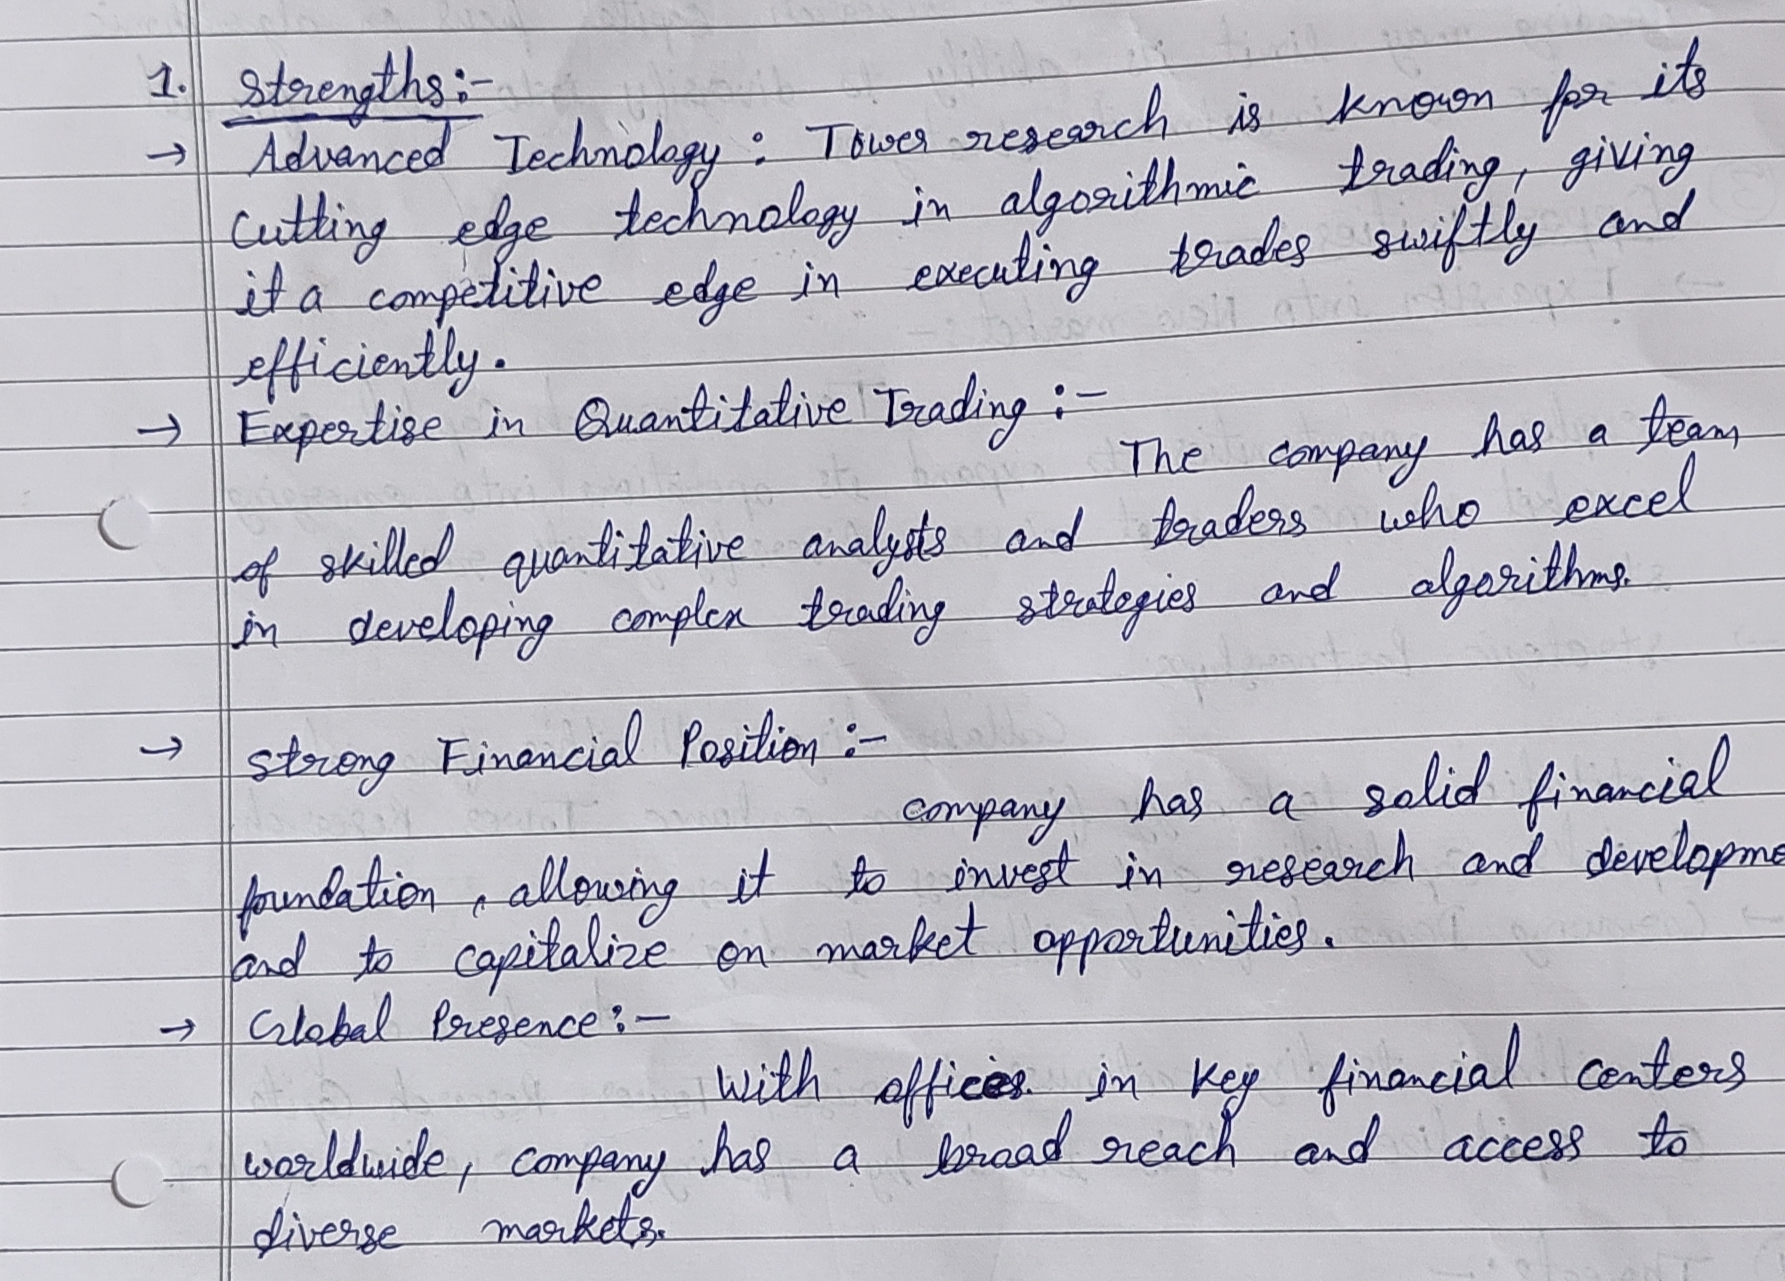 1. Strengths:-
→ Advanced Technology: Tower research is known for its
cutting edge technology in algorithmic trading, giving
it a competitive edge in executing trades swiftly and
efficiently.
→ Expertise in Quantitative Trading :-
The company has a team
of skilled quantitative analysts and traders who excel
in developing complex trading strategies and algorithms.
→ Strong Financial Position :-
company has a solid financial
foundation, allowing it to invest in research and developme
and to capitalize on market opportunities.
→ Global Presence :-
With offices in key financial centers
worldwide, company has a broad reach and access to
diverse markets.